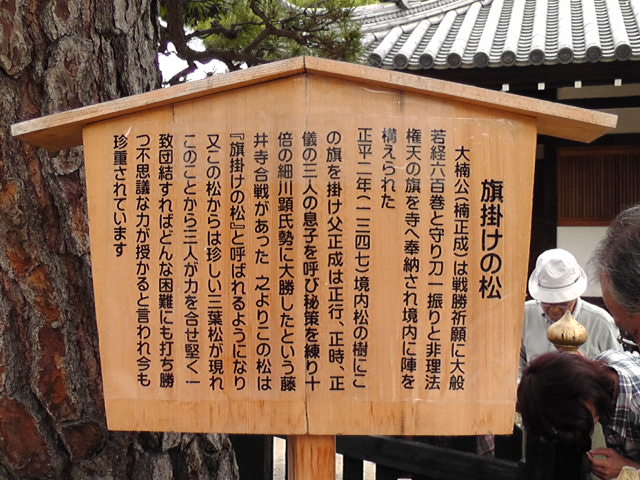 旗掛けの松
大楠公(楠正成)は戦勝祈願に大般
若経六百巻と守り刀一振りと非理法
権天の旗を寺へ奉納され境内に陣を
構えられた
正平二年(一三四七)境内松の樹にこ
の旗を掛け父正成は正行、正時、正
儀の三人の息子を呼び秘策を練り十
倍の細川顕氏勢に大勝したという藤
井寺合戦があった 之よりこの松は
『旗掛けの松』と呼ばれるようになり
又この松からは珍しい三葉松が現れ
このことから三人が力を合せ堅く一
致団結すればどんな困難にも打ち勝
つ不思議な力が授かると言われ今も
珍重されています